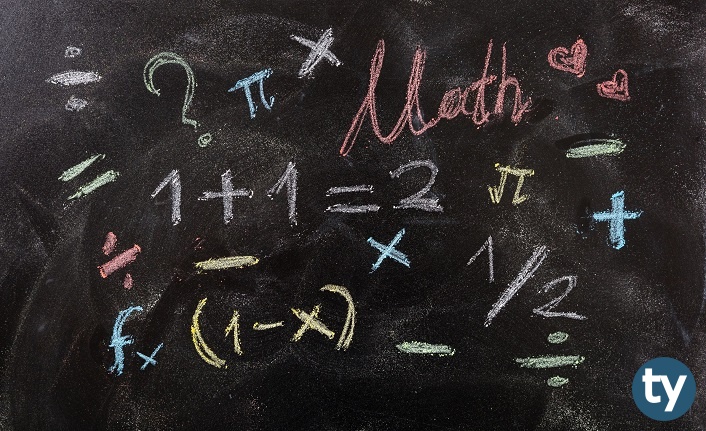 ÷ ? π × Math
= 1+1=2 π − +
÷ − × 1/2
fx (1-x) − ÷
ty